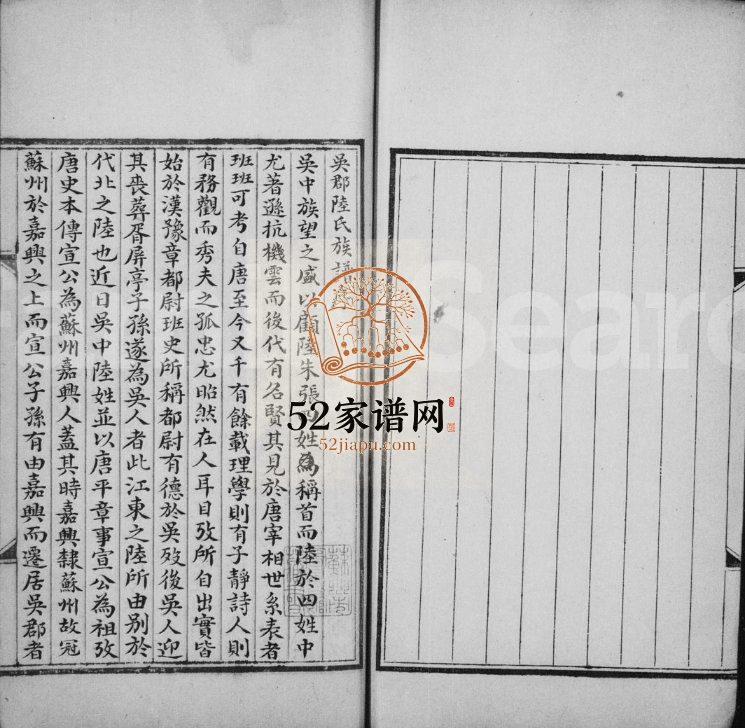 吳郡陸氏族譜
吳中族望之盛以顧陸朱張四姓為稱首而陸於四姓中
尤著遜抗機雲而後代有名賢其見於唐宰相世系表者
班班可考自唐至今又千有餘載理學則有子靜詩人則
有務觀而秀夫之孤忠尤昭然在人耳目攷所自出實皆
始於漢豫章都尉班史所稱都尉有德於吳歿後吳人迎
其喪葬胥屏亭子孫遂為吳人者此江東之陸所由别於
代北之陸也近日吳中陸姓並以唐平章事宣公為祖攷
唐史本傳宣公為蘇州嘉興人蓋其時嘉興隸蘇州故冠
蘇州於嘉興之上而宣公子孫有由嘉興而遷居吳郡者
52家谱网
52jiapu.com
Search